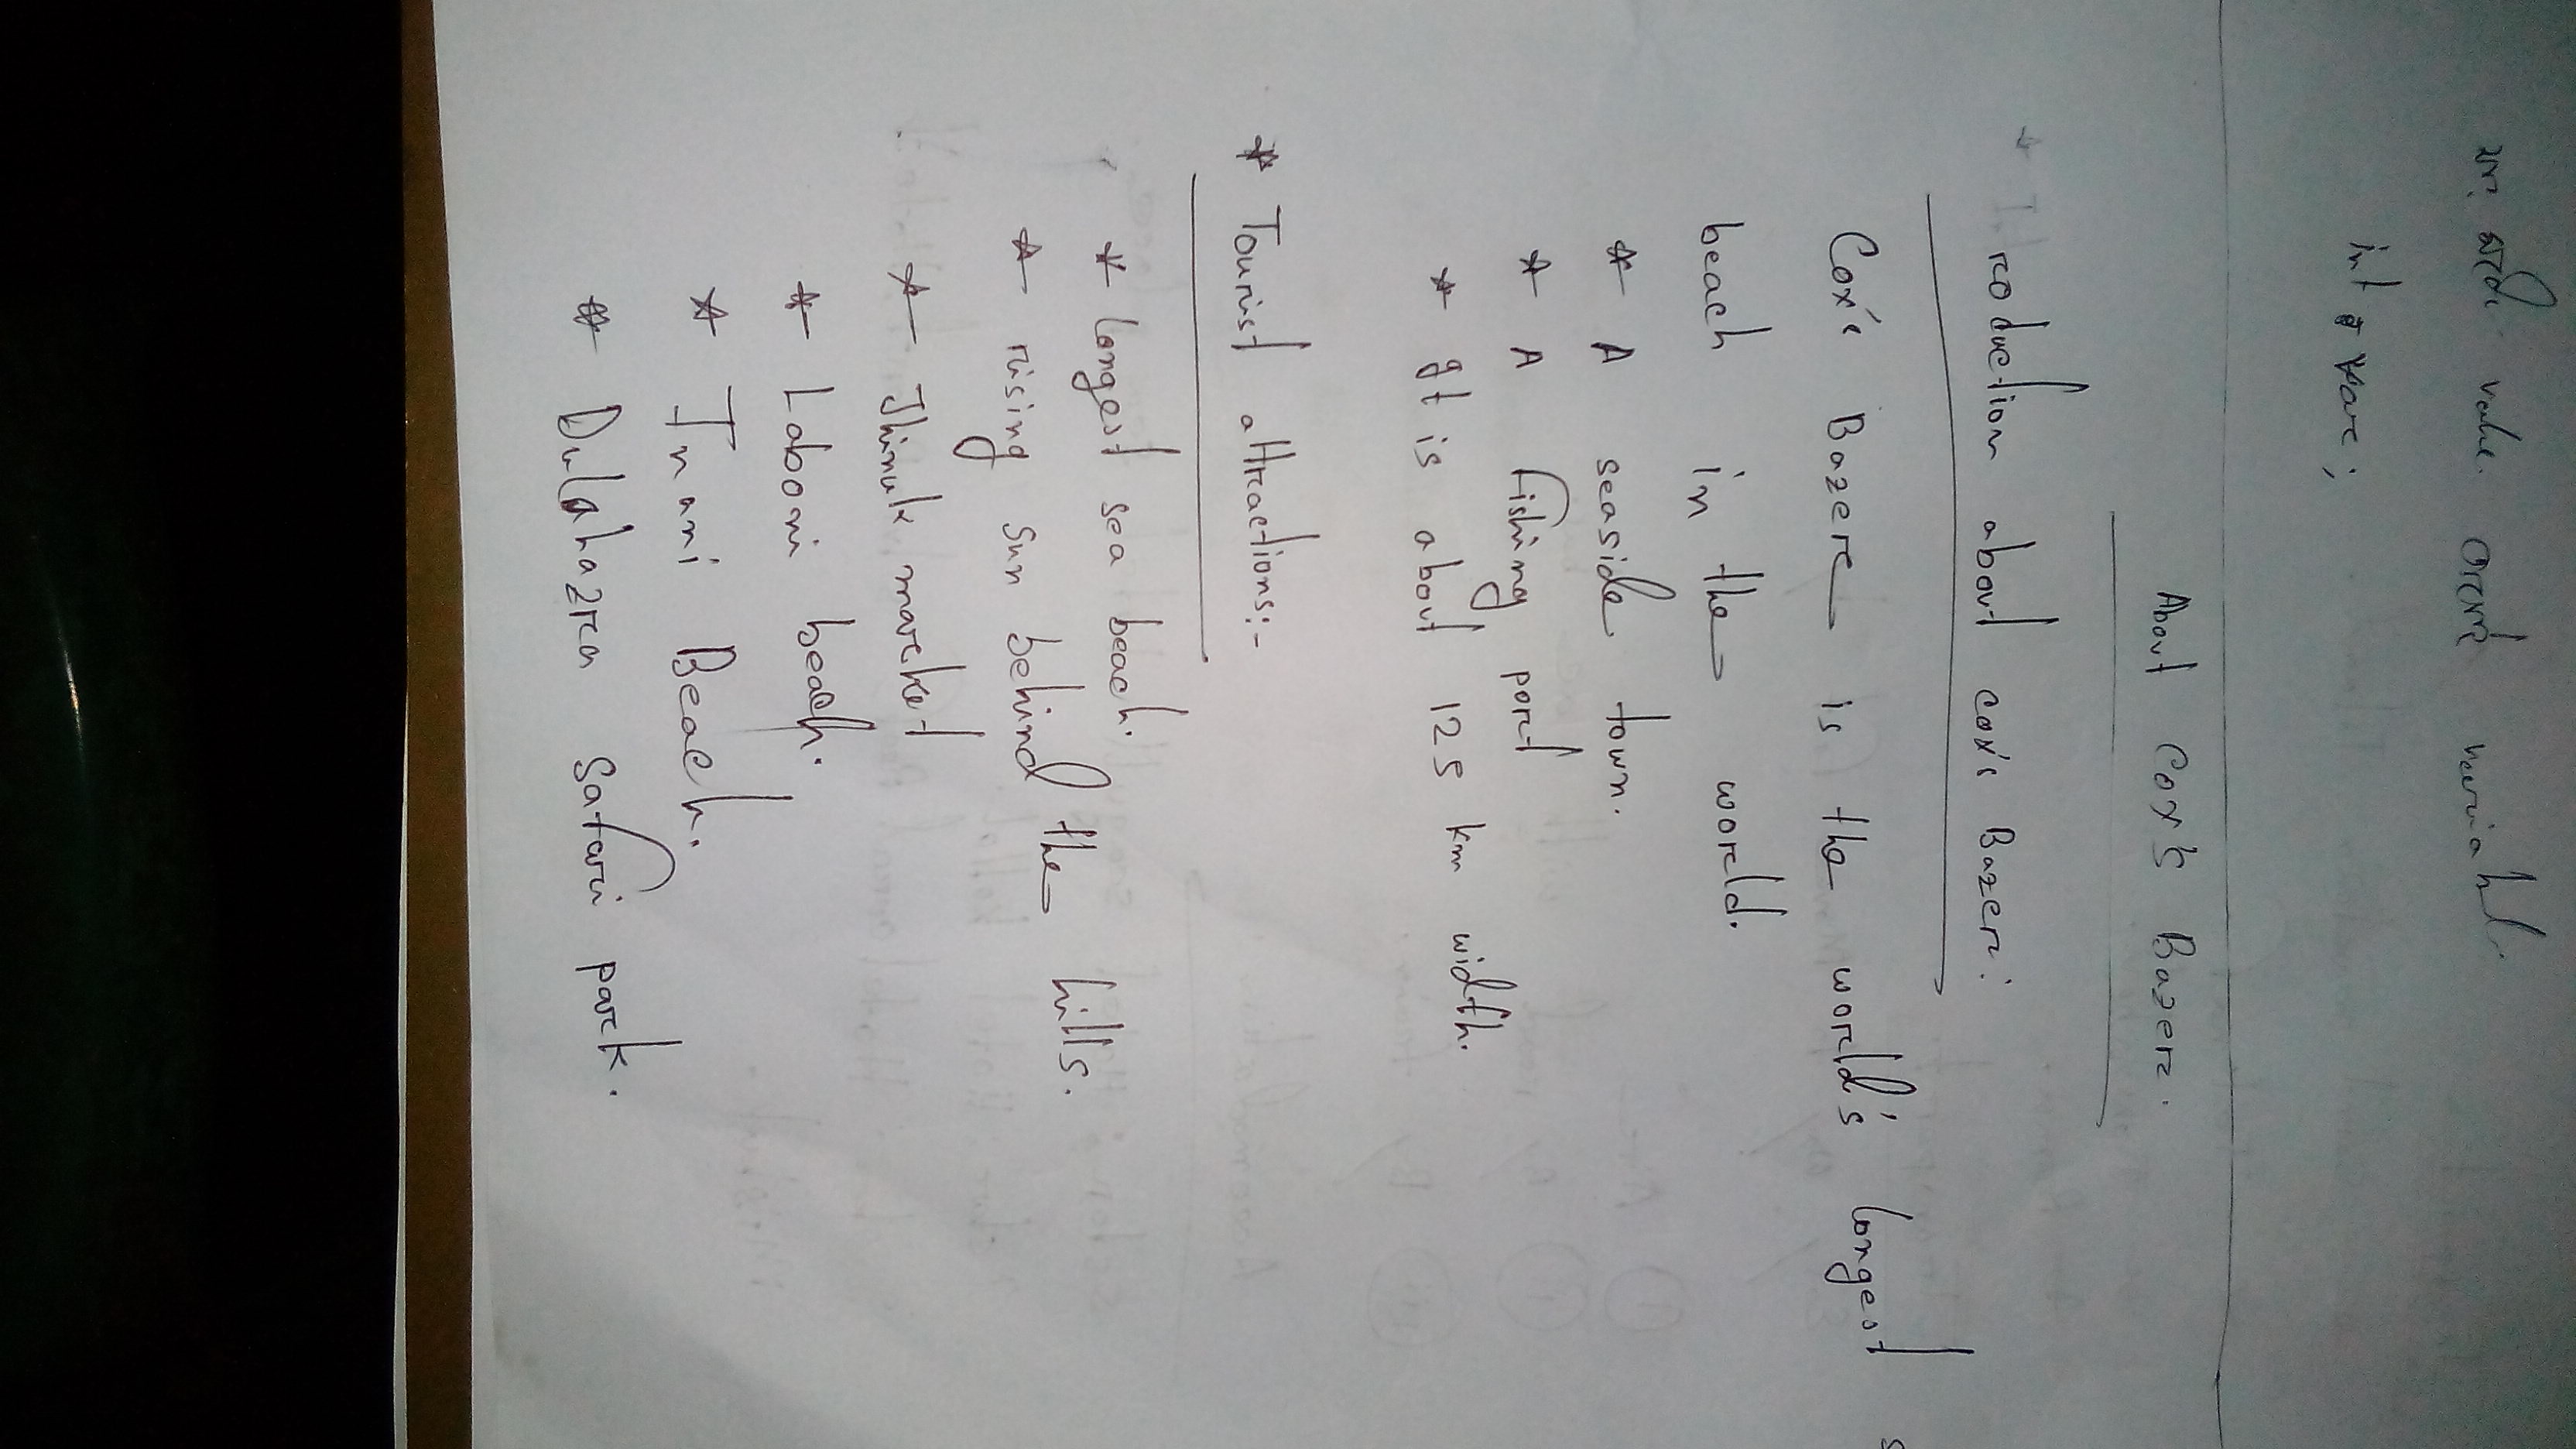 value. variable
int var;
About Cox's Bazer.
* roduction about cox's Bazer:
Cox's Bazer is the world's longest
beach in the world.
* A seaside town.
* A fishing port
* It is about 125 km width.
* Tourist attractions:-
* Longest sea beach.
* rising sun behind the hills.
* Jhinuk market
* Laboni beach.
* Inani Beach.
* Dulahazra Safari park.